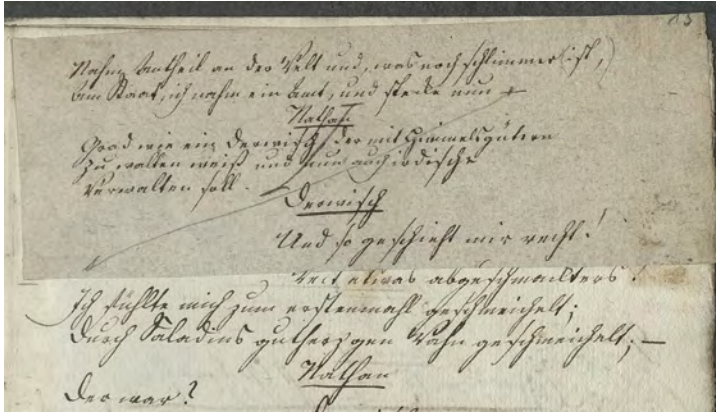 13
Nahm Antheil an der Welt und, was noch schlimmer ist,)
Am Staat, ich nahm ein Amt, und stecke nun
Nathan
Grad wie ein Derwisch, der mit Himmelsgütern
Zu walten weiß und nun auch irdische
Verwalten soll.
Derwisch
Und so geschieht mir recht!
etwas abgeschmackters!
Ich fühlte mich zum erstenmahl geschmeichelt;
Durch Saladins gutherzgen Wahn geschmeichelt; —
Nathan
Der war?